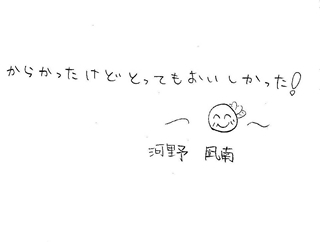 からかったけどとってもおいしかった!
河野 凪南